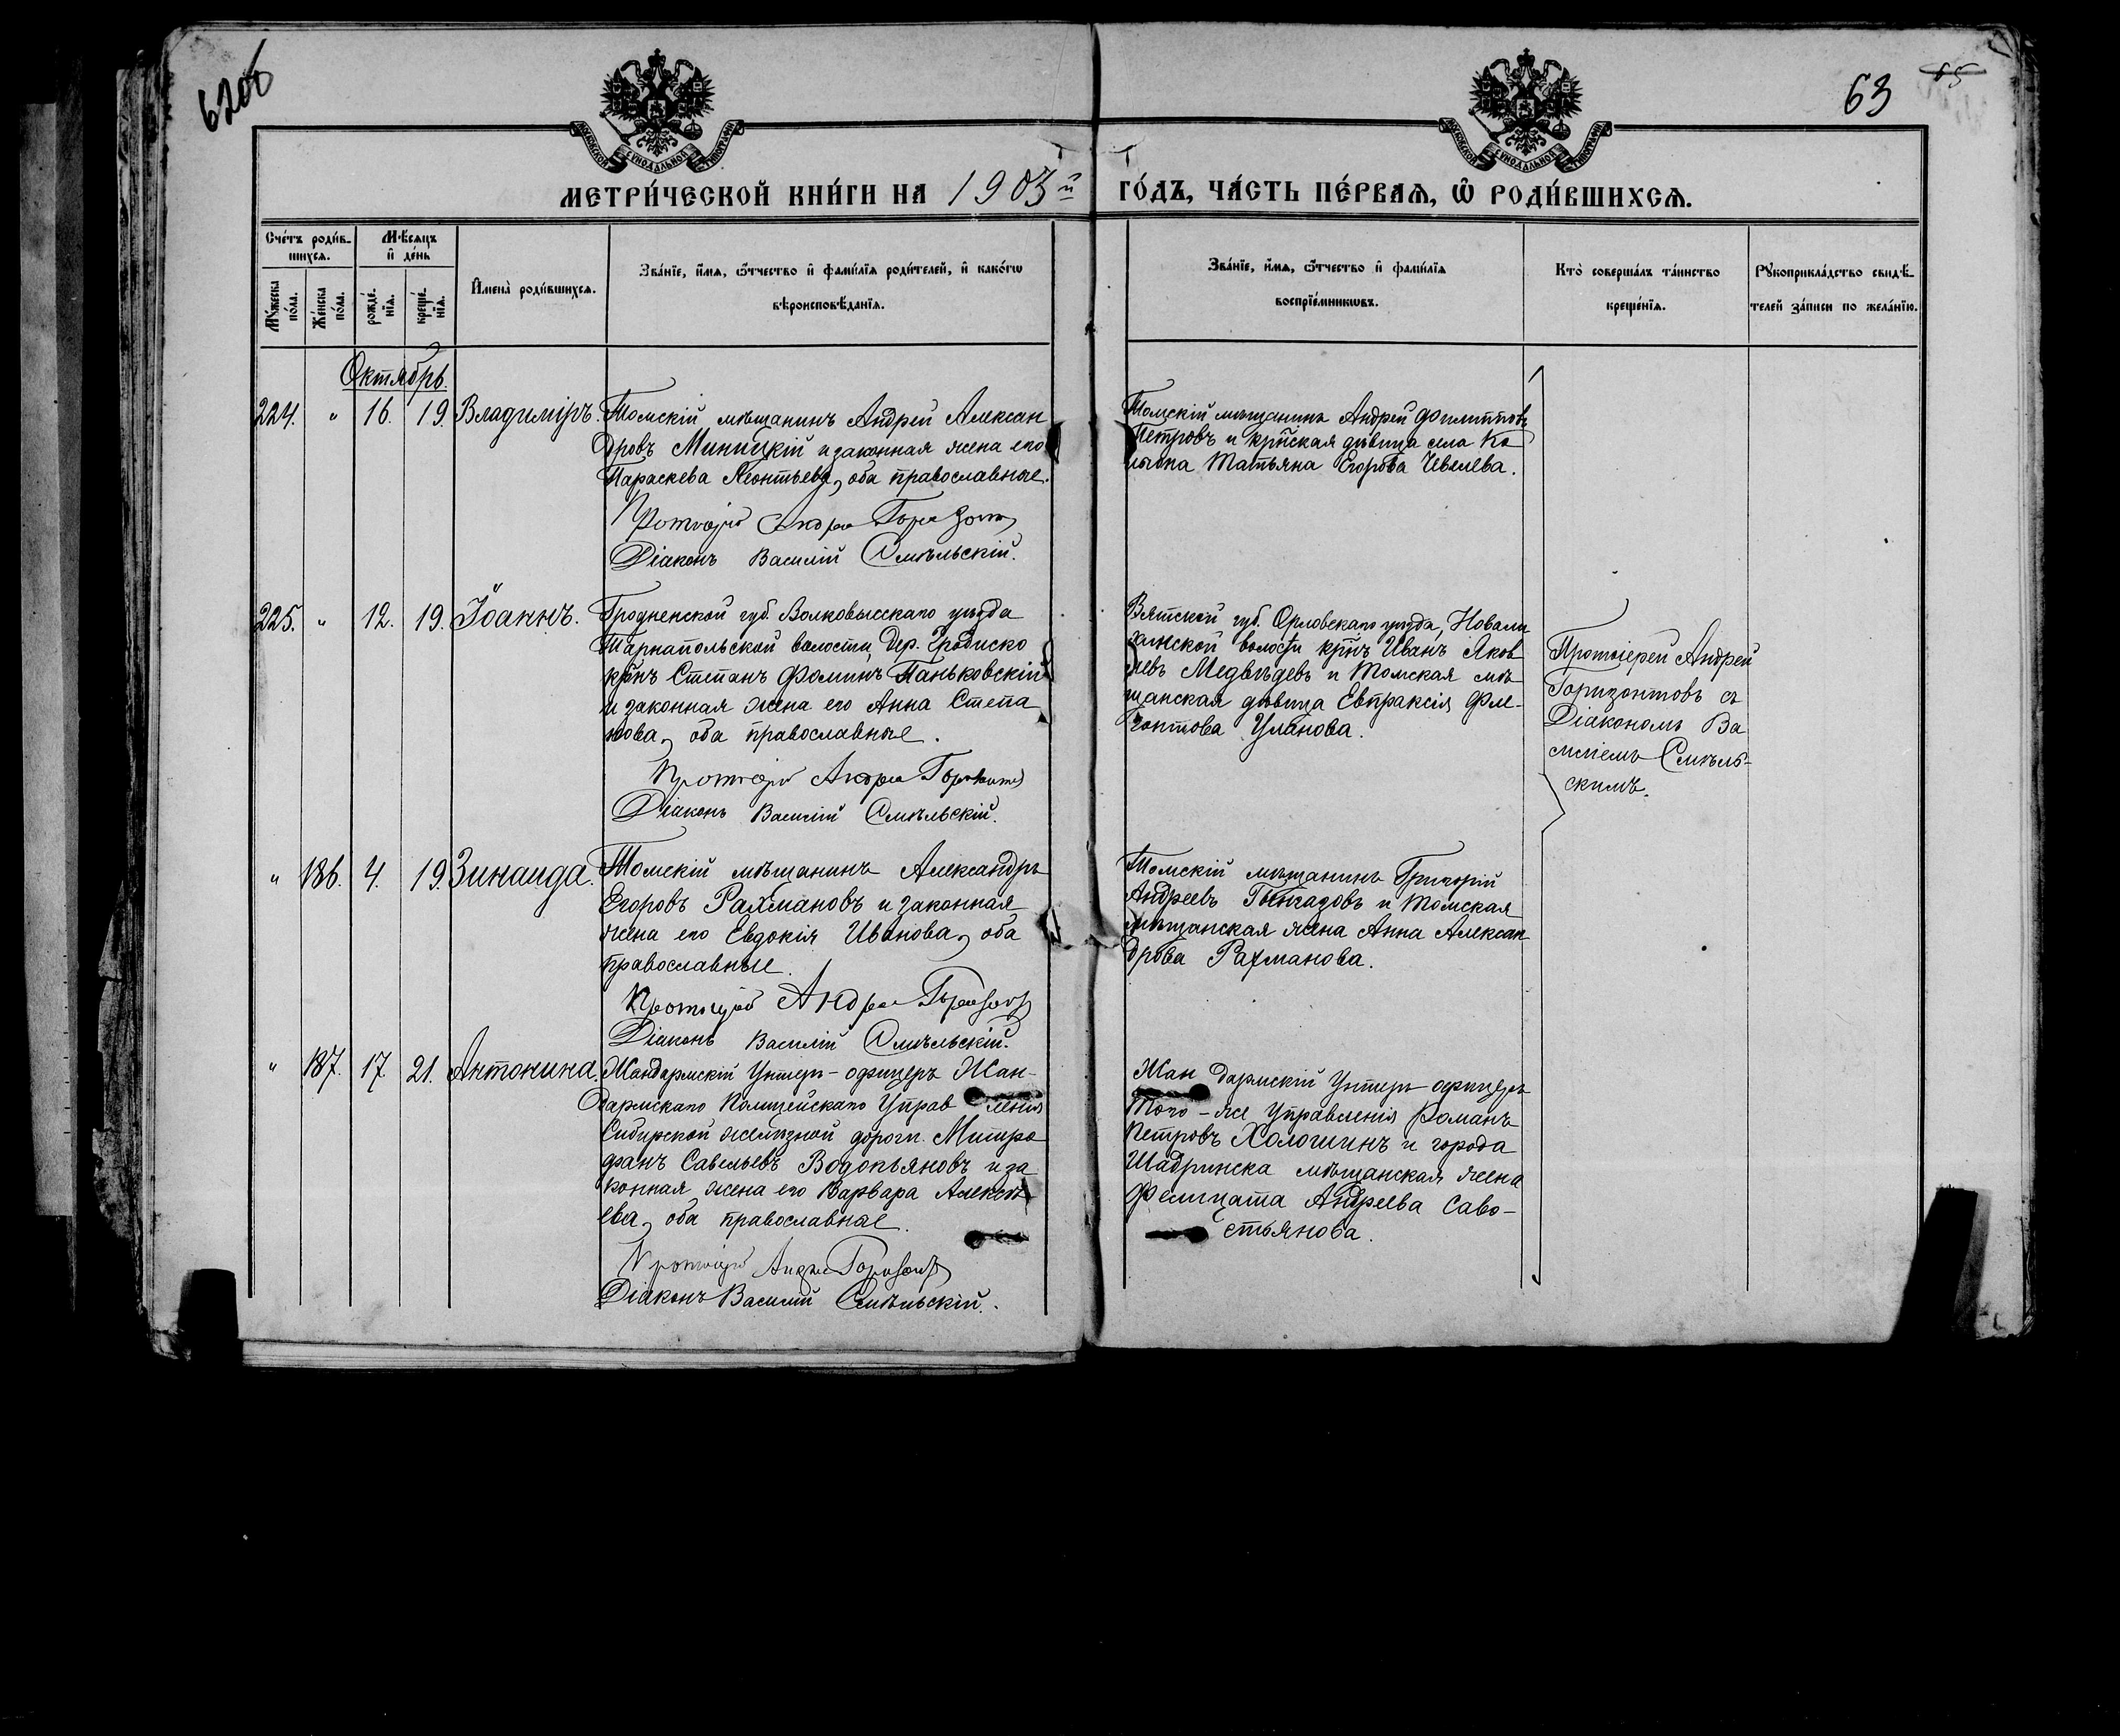 62об
63
65
МОСКОВСКОЙ СѴНОДАЛЬНОЙ ТИПОГРАФІИ
МОСКОВСКОЙ СѴНОДАЛЬНОЙ ТИПОГРАФІИ
МЕТРИ́ЧЕСКОЙ КНИ́ГИ НА 1903й ГО́ДЪ, ЧА́СТЬ ПЕ́РВАѦ, Ѡ҆ РОДИ́ВШИХСѦ.
Сче́тъ роди́в-
шихсѧ.
Мꙋ́жеска по́ла.
Же́нска по́ла.
Мѣ́сяцъ и҆ де́нь
рожде́-
нїѧ.
креще́-
нїѧ.
И҆мена̀ роди́вшихсѧ.
Зва́нїе, и҆́мѧ, ѻ҆́тчество и҆ фамі́лїѧ роди́телей, и҆ како́гѡ
вѣроисповѣ́данїѧ.
Зва́нїе, и҆́мѧ, ѻ҆́тчество и҆ фамі́лїѧ
воспрїе́мникѡвъ.
Кто̀ соверша́лъ та́инство
креще́нїѧ.
Рꙋкоприкла́дство свидѣ́-
телей за́писи по жела́нїю.
Октябрь.
224. " 16. 19. Владиміръ.
Томскій мѣщанинъ Андрей Алексан
дровъ Миницкій и законная жена его
Параскева Леонтьева, оба православные.
Протоіерей Андрей Горизонтовъ
Діаконъ Василій Смѣльскій.
Томскій мѣщанинъ Андрей Филипповъ
Петровъ и крнская дѣвица села
Татьяна Егорова Чевелева.
225. " 12. 19. Іоаннъ.
Гродненской губ. Волковысскаго уѣзда
Тарнапольской волости, дер. Гродиско
крнъ Степанъ Фоминъ Паньковскій
и законная жена его Анна Степа
нова, оба православные.
Протоіерей Андрей Горизонтовъ
Діаконъ Василій Смѣльскій.
Вятской губ. Орловскаго уѣзда,
волости крнъ Иванъ Яков
левъ Медвѣдевъ и Томская мѣ
щанская дѣвица Евпраксія Фле-
гонтова Уланова.
Протоіерей Андрей
Горизонтовъ съ
Діакономъ Ва
силіемъ Смѣль-
скимъ.
" 186. 4. 19. Зинаида.
Томскій мѣщанинъ Александръ
Егоровъ Рахмановъ и законная
жена его Евдокія Иванова, оба
православные.
Протоіерей Андрей Горизонтовъ
Діаконъ Василій Смѣльскій.
Томскій мѣщанинъ Григорій
Андреевъ и Томская
мѣщанская жена Анна Алексан
дрова Рахманова.
" 187. 17. 21. Антонина.
Жандармскій Унтеръ-офицеръ Жан-
дармскаго Полицейскаго Управленія
Сибирской желѣзной дороги Митро
фанъ Савельевъ Водопьяновъ и за
конная жена его Варвара Алексѣ
ева, оба православные.
Протоіерей Андрей Горизонтовъ
Діаконъ Василій Смѣльскій.
Жандармскій Унтеръ офицеръ
того-же Управленія Романъ
Петровъ Холошинъ и города
Шадринска мѣщанская жена
Фелицата Андреева Саво-
стьянова.